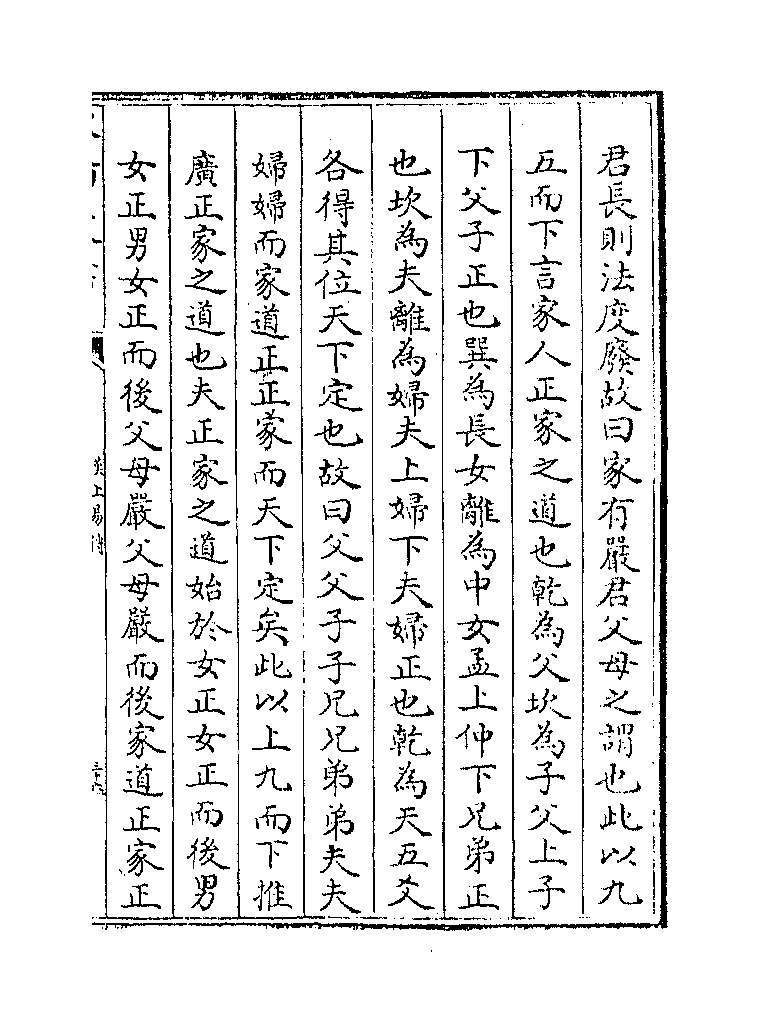 君長則法度廢故曰家有嚴君父母之謂也此以九
五而下言家人正家之道也乾為父坎為子父上子
下父子正也巽為長女離為中女孟上仲下兄弟正
也坎為夫離為婦夫上婦下夫婦正也乾為天五爻
各得其位天下定也故曰父父子子兄兄弟弟夫夫
婦婦而家道正正家而天下定矣此以上九而下推
廣正家之道也夫正家之道始於女正女正而後男
女正男女正而後父母嚴父母嚴而後家道正家正
漢上易傳
三十六